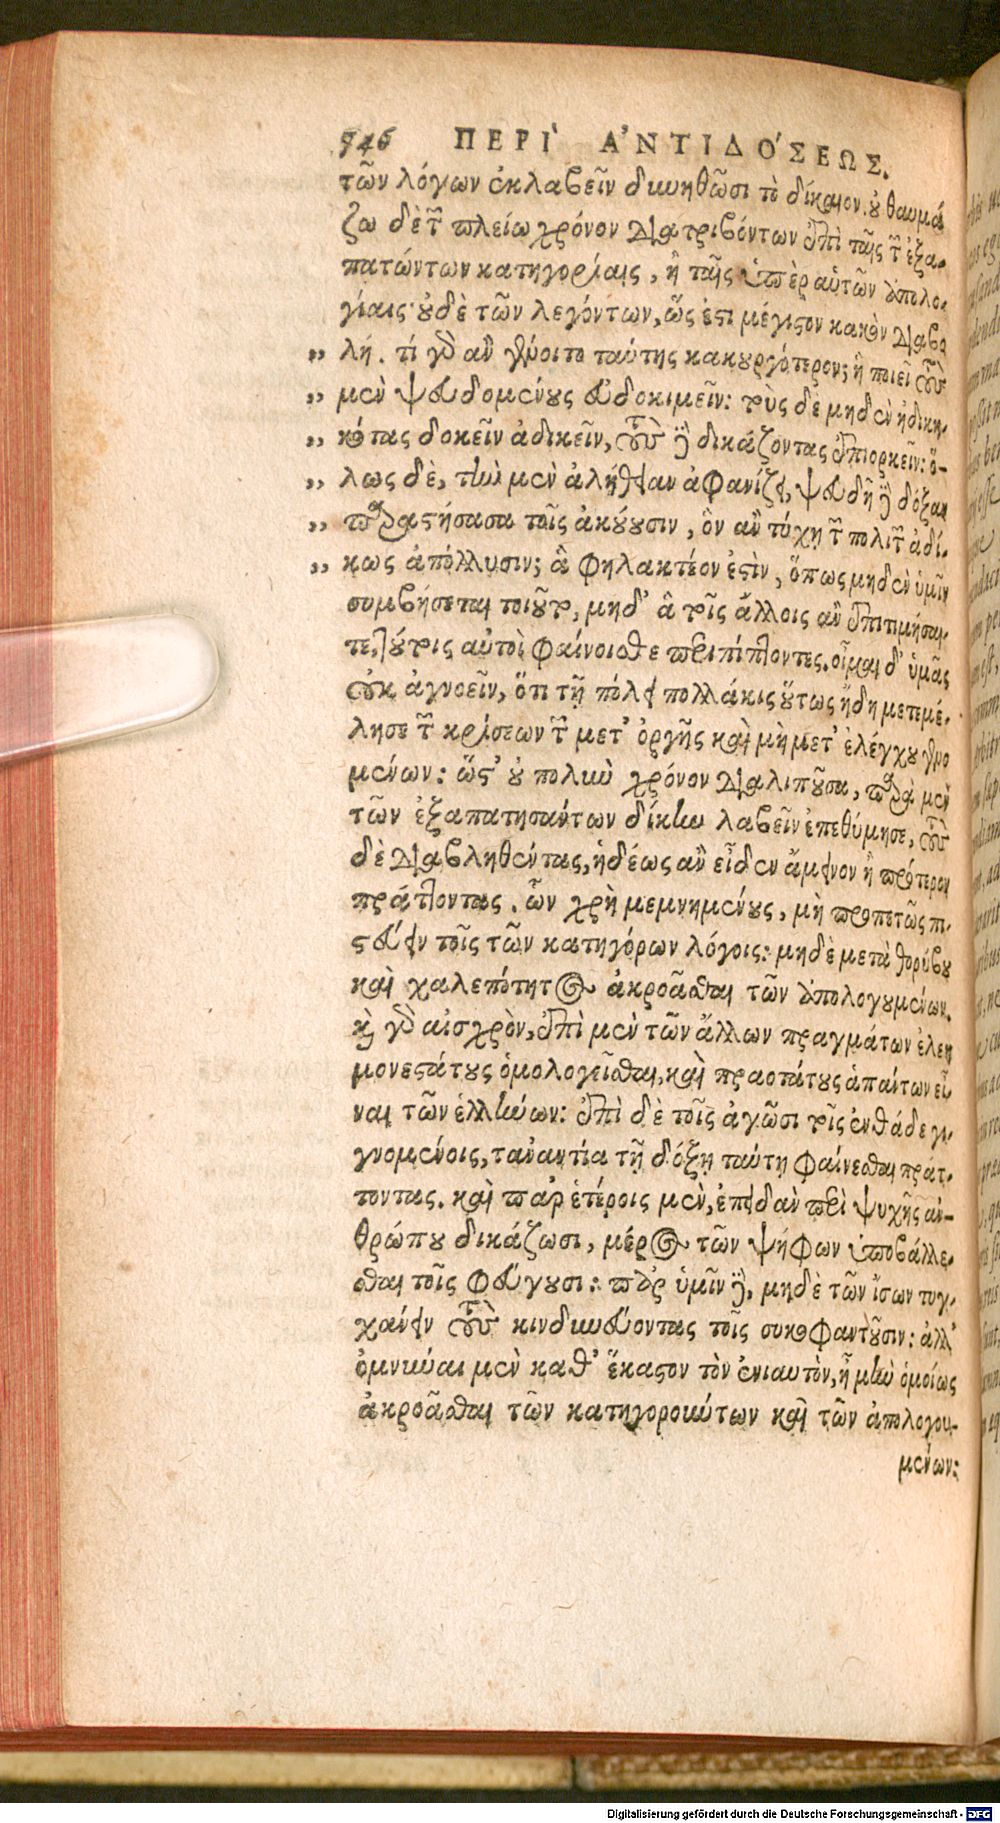 946 ΠΕΡῚ ἈΝΤΙΔΌΣΕΩΣ.
τῶν λόγων ἐκλαβεῖν δυνηθῶσι τὸ δίκαιον. οὐ θαυμά
ζω δὲ τῶν πλείω χρόνον διατριβόντων ἐπὶ ταῖς τῶν ἐξα-
πατώντων κατηγορίαις, ἢ ταῖς ὑπὲρ αὑτῶν ἀπολο-
γίαις· οὐδὲ τῶν λεγόντων, ὥς ἐστι μέγιστον κακὸν διαβο
„ λή. τί γὰρ ἂν γένοιτο ταύτης κακουργότερον; ἣ ποιεῖ τοὺς
„ μὲν ψευδομένους εὐδοκιμεῖν: τοὺς δὲ μηδὲν ἠδικη-
„ κότας δοκεῖν ἀδικεῖν, τοὺς δὲ δικάζοντας ἐπιορκεῖν: ὅ-
„ λως δὲ, τὴν μὲν ἀλήθειαν ἀφανίζει, ψευδῆ δὲ δόξαν
„ παραστήσασα τοῖς ἀκούουσιν, ὃν ἂν τύχῃ τῶν πολιτῶν ἀδί-
„ κως ἀπόλλυσιν; ἃ φηλακτέον ἐστὶν, ὅπως μηδὲν ὑμῖν
συμβήσεται τοιοῦτο, μηδ' ἃ τοῖς ἄλλοις ἂν ἐπιτιμήσαι-
τε, τούτοις αὐτοὶ φαίνοισθε περιπίπτοντες. οἶμαι δ' ὑμᾶς
οὐκ ἀγνοεῖν, ὅτι τῇ πόλει πολλάκις οὕτως ἤδη μετεμέ-
λησε τῶν κρίσεων τῶν μετ' ὀργῆς καὶ μὴ μετ' ἐλέγχου γενο
μένων: ὥστ' οὐ πολὺν χρόνον διαλιποῦσα, παρὰ μὲν
τῶν ἐξαπατησάντων δίκην λαβεῖν ἐπεθύμησε, τοὺς
δὲ διαβληθέντας, ἡδέως ἂν εἶδεν ἄμεινον ἢ πρότερον
πράττοντας. ὧν χρὴ μεμνημένους, μὴ προπετῶς πι-
στεύειν τοῖς τῶν κατηγόρων λόγοις: μηδὲ μετὰ θορύβου
καὶ χαλεπότητος ἀκροᾶσθαι τῶν ἀπολογουμένων.
καὶ γὰρ αἰσχρὸν, ἐπὶ μὲν τῶν ἄλλων πραγμάτων ἐλεη
μονεστάτους ὁμολογεῖσθαι, καὶ πραοτάτους ἁπάντων εἶ
ναι τῶν ἑλλήνων: ἐπὶ δὲ τοῖς ἀγῶσι τοῖς ἐνθάδε γι-
γνομένοις, τἀναντία τῇ δόξῃ ταύτῃ φαίνεσθαι πράτ-
τοντας. καὶ παρ' ἑτέροις μὲν, ἐπειδὰν περὶ ψυχῆς ἀν-
θρώπου δικάζωσι, μέρος τῶν ψήφων ὑποβάλλε-
σθαι τοῖς φεύγουσι: παρ' ὑμῖν δὲ, μηδὲ τῶν ἴσων τυγ-
χάνειν τοὺς κινδυνεύοντας τοῖς συκοφαντοῦσιν: ἀλλ'
ὀμνύναι μὲν καθ' ἕκαστον τὸν ἐνιαυτὸν, ἦ μὴν ὁμοίως
ἀκροᾶσθαι τῶν κατηγορούντων καὶ τῶν ἀπολογου-
μένων:
Digitalisierung gefördert durch die Deutsche Forschungsgemeinschaft - DFG